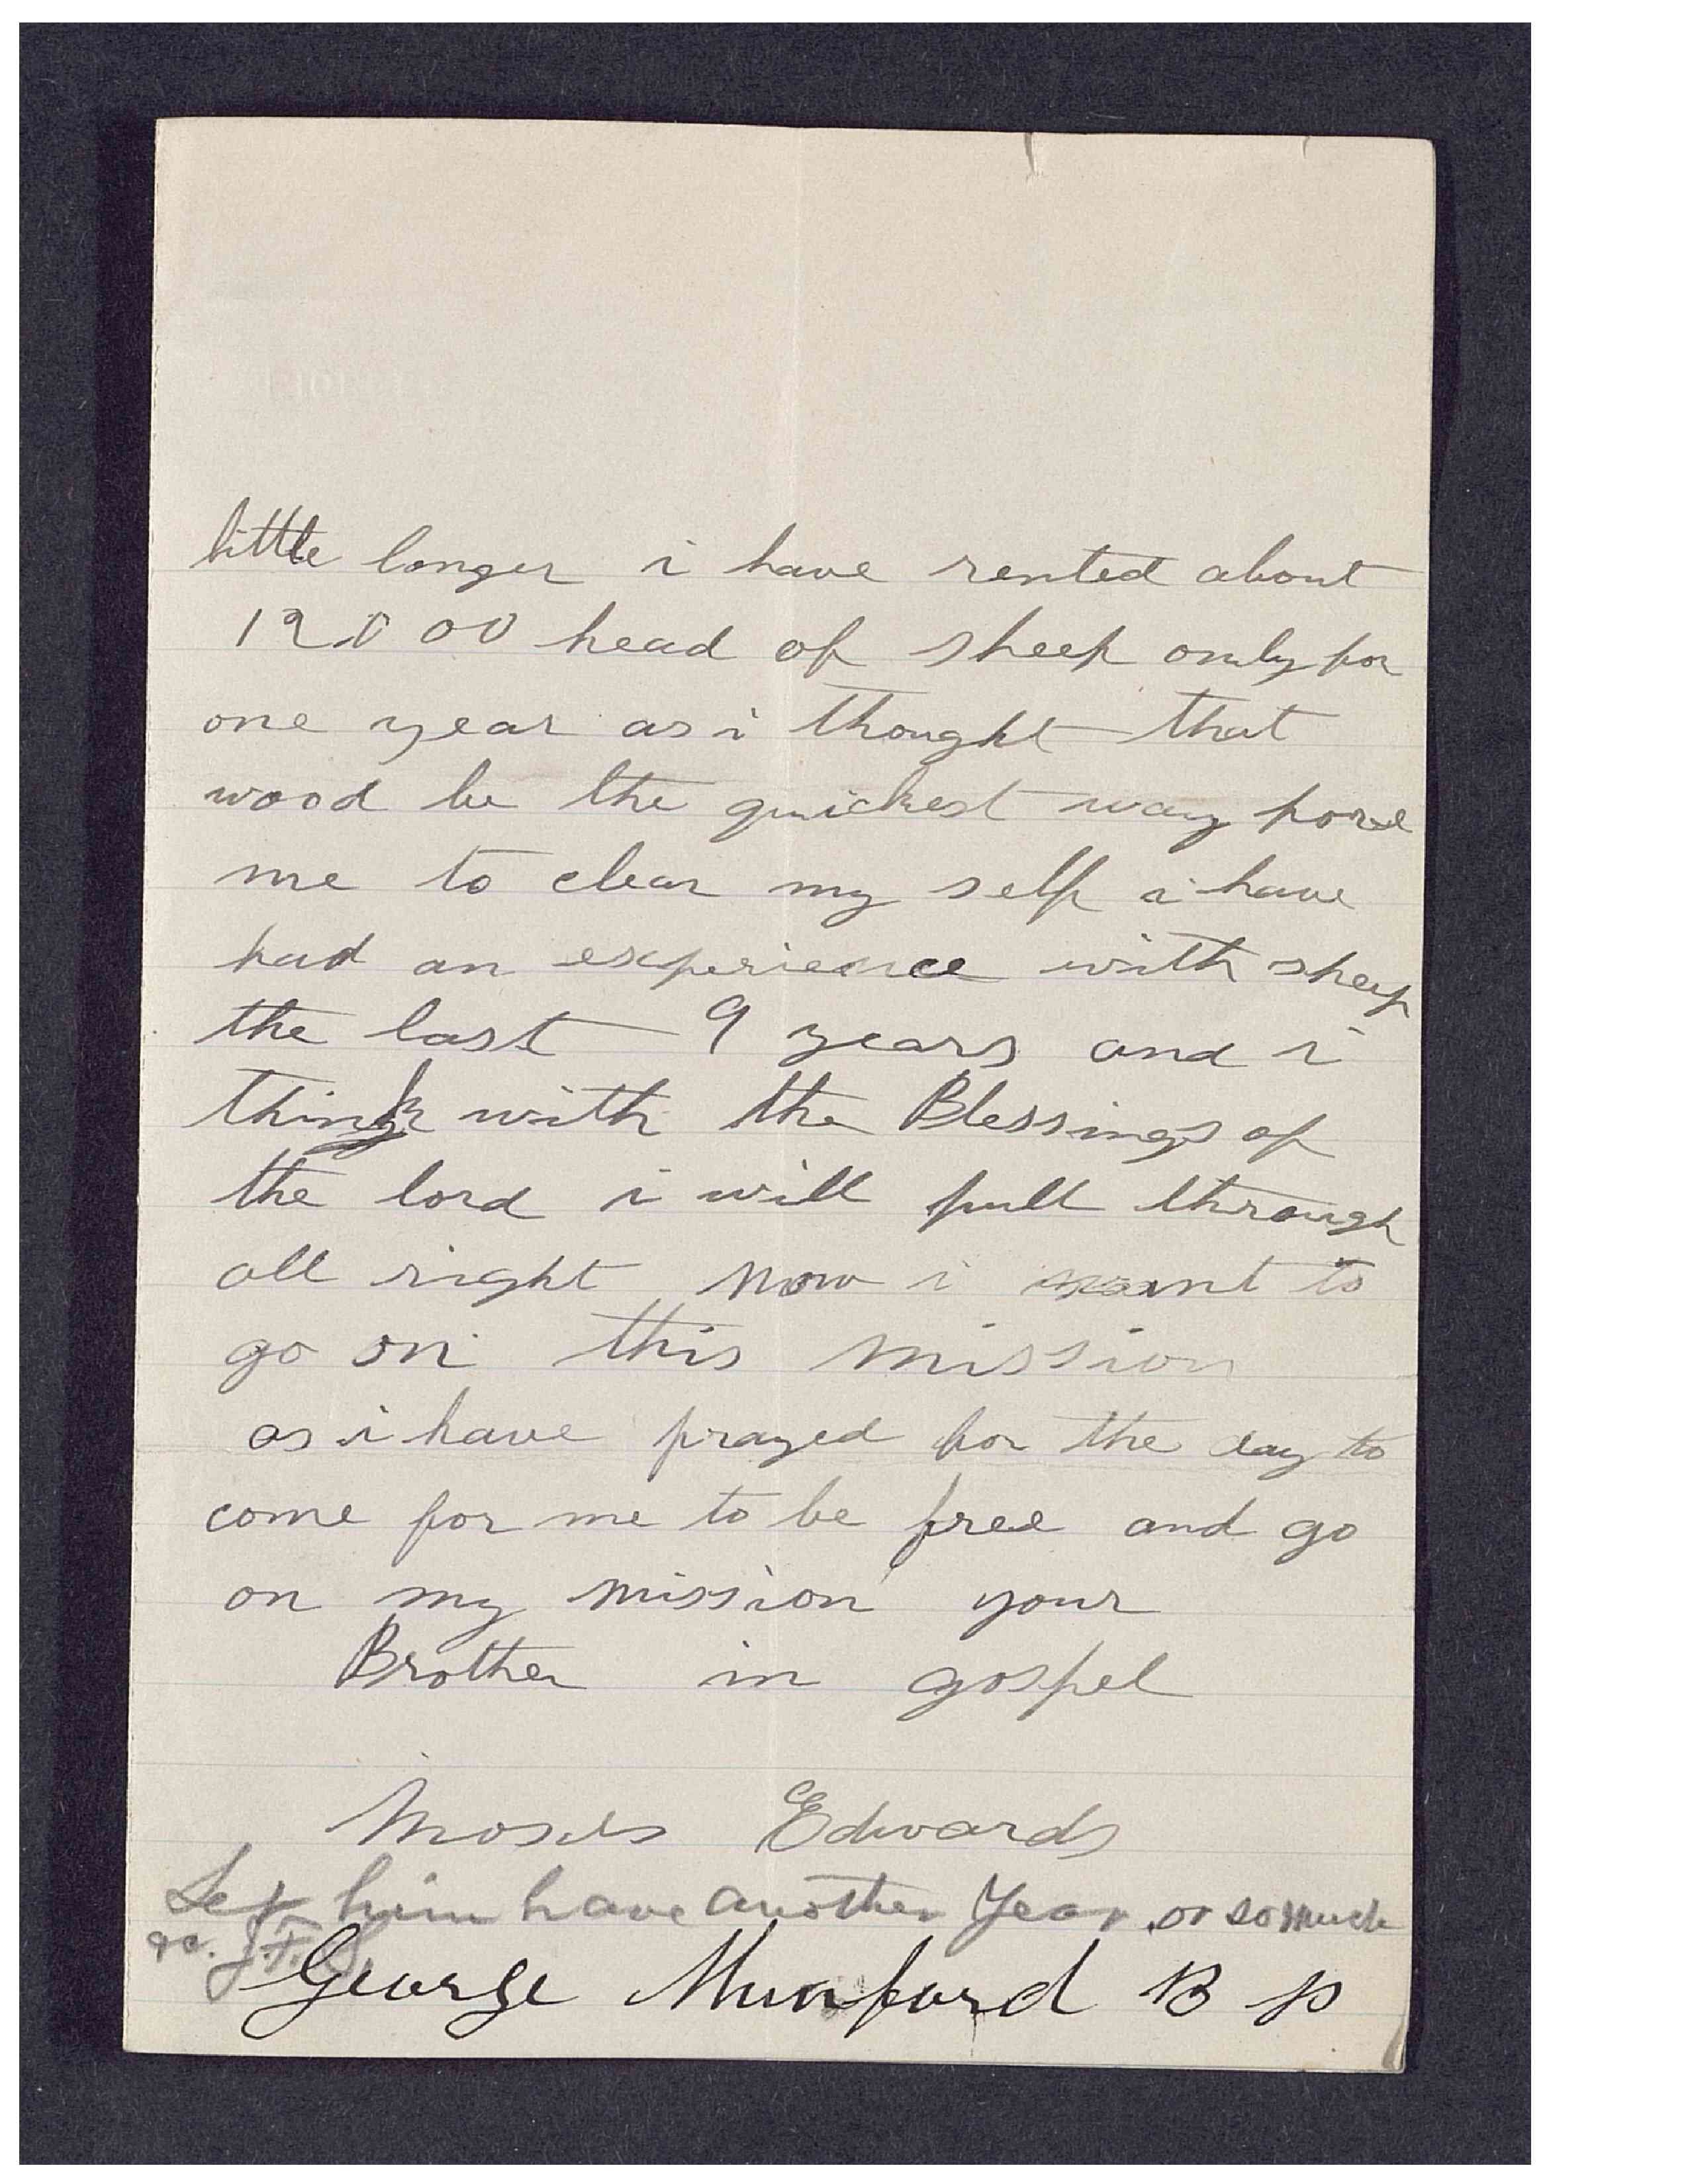 little longer i have rented about
12000 head of sheep only for
one year as i thought that
wood be the quickest way fore
me to clear my self i have
had an experience with sheep
the last 9 years and i
think with the Blessings of
the lord i will pull through
all right Now i want to
go on this mission
as i have prayed for the day to
come for me to be free and go
on my mission your
Brother in gospel
Moses Edwards
Let him have another Year, or so much
J. F. S.
George Munford B p